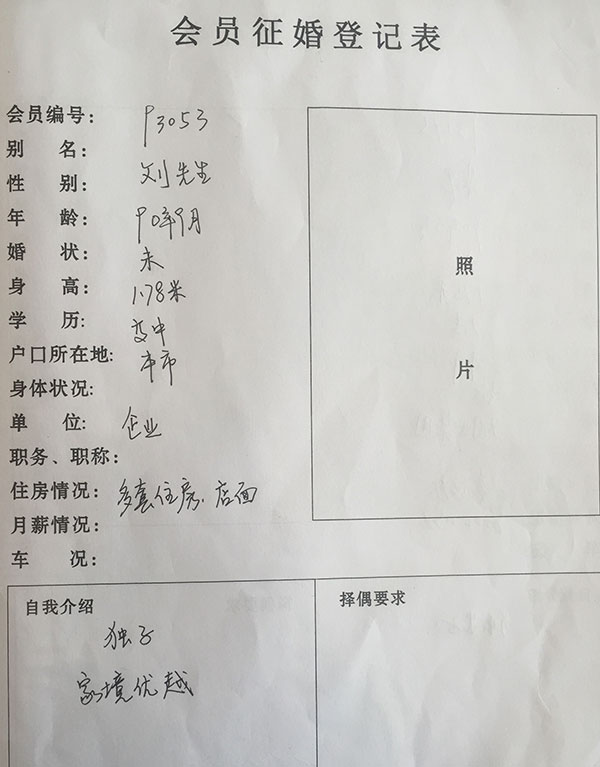 会员征婚登记表
会员编号: 93053
别 名:
性 别: 刘先生
年 龄: 90年9月
婚 状: 未
身 高: 1.78米
学 历: 高中
户口所在地: 本市
身体状况:
单 位: 企业
职务、职称:
住房情况: 多套住房、店面
月薪情况:
车 况:
照
片
自我介绍
独子
家境优越
择偶要求